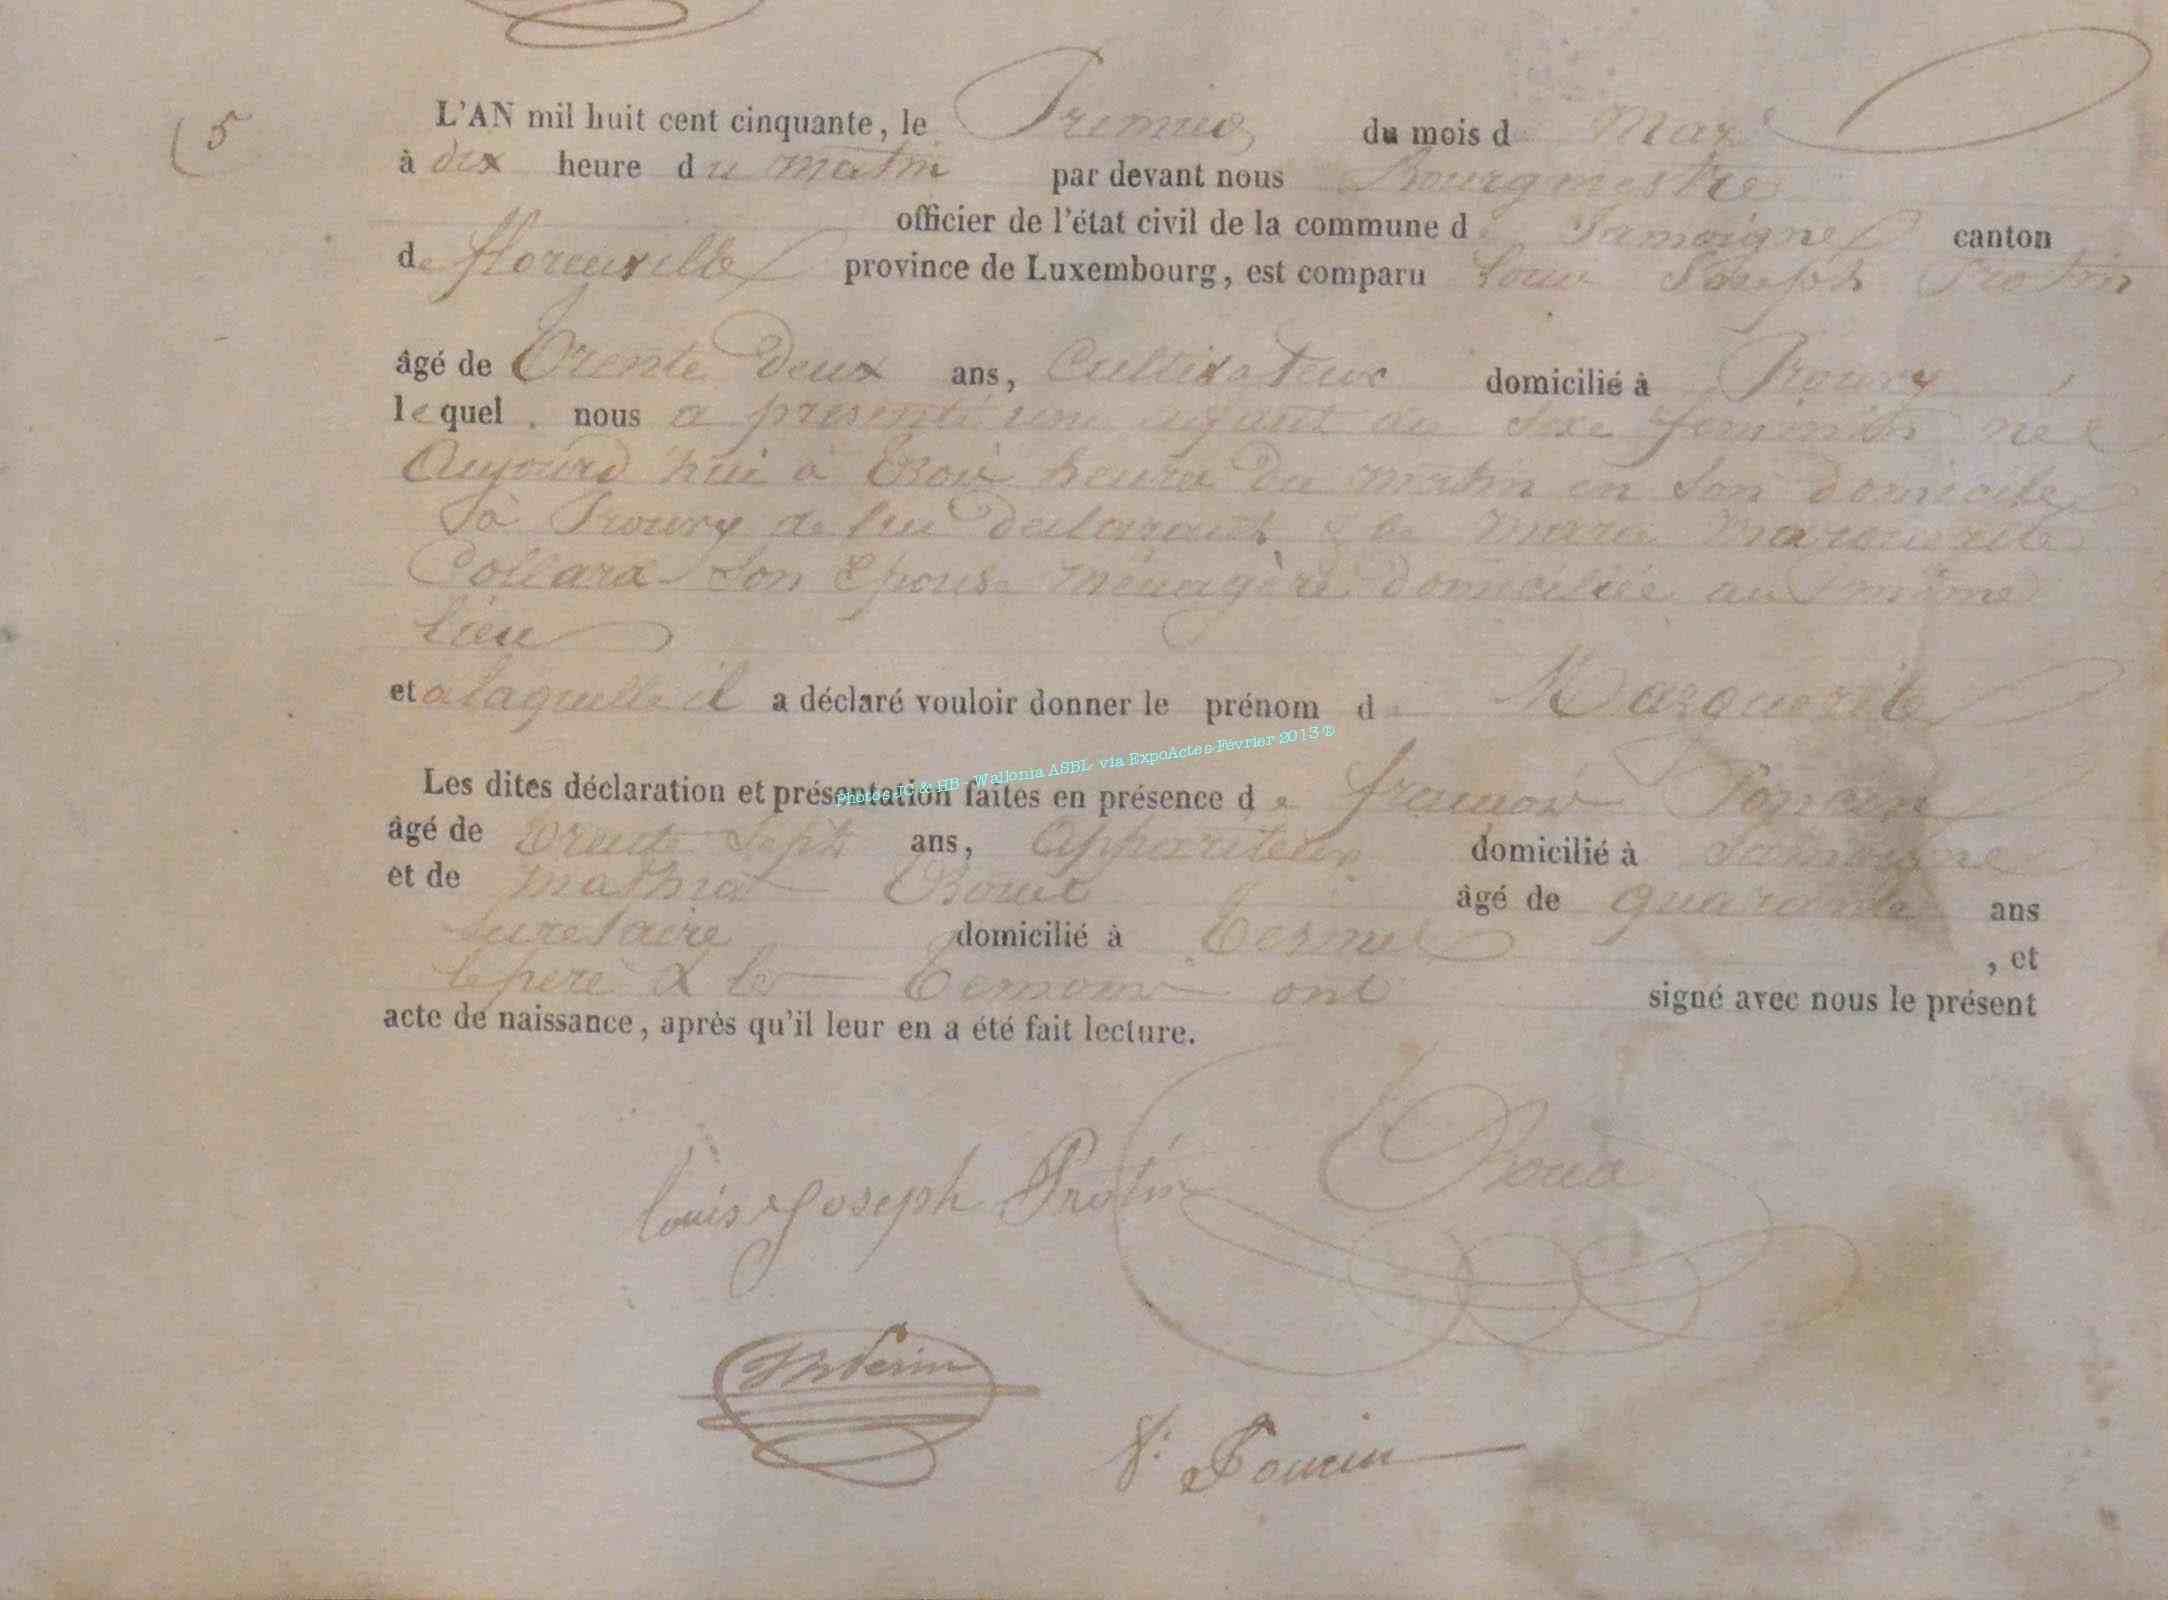 5
L'AN mil huit cent cinquante, le Premier du mois de Mars
à dix heure du matin par devant nous Bourgmestre
officier de l'état civil de la commune de Jamoigne canton
de florenville province de Luxembourg, est comparu Louis Joseph Protin
âgé de Trente Deux ans, Cultivateur domicilié à Prouvy
lequel nous a presenté une enfant du sexe feminin né
Aujourd'hui à Trois heures du matin en son domicile
à Prouvy de lui declarant & de Marie Marguerite
Collard son Epouse menagère domiciliée au même
lieu
et a laquelle il a déclaré vouloir donner le prénom de Marguerite
Les dites déclaration et présentation faites en présence de françois Poncin
Photos JC & HB - Wallonia ASBL- via ExpoActes-Février 2013 ©
âgé de Trente Sept ans, Appariteur domicilié à Jamoigne
et de Mathias âgé de quarante ans
secretaire domicilié à Termes , et
le pere & les Temoins ont signé avec nous le présent
acte de naissance, après qu'il leur en a été fait lecture.
Louis Joseph Protin
f: Poncin